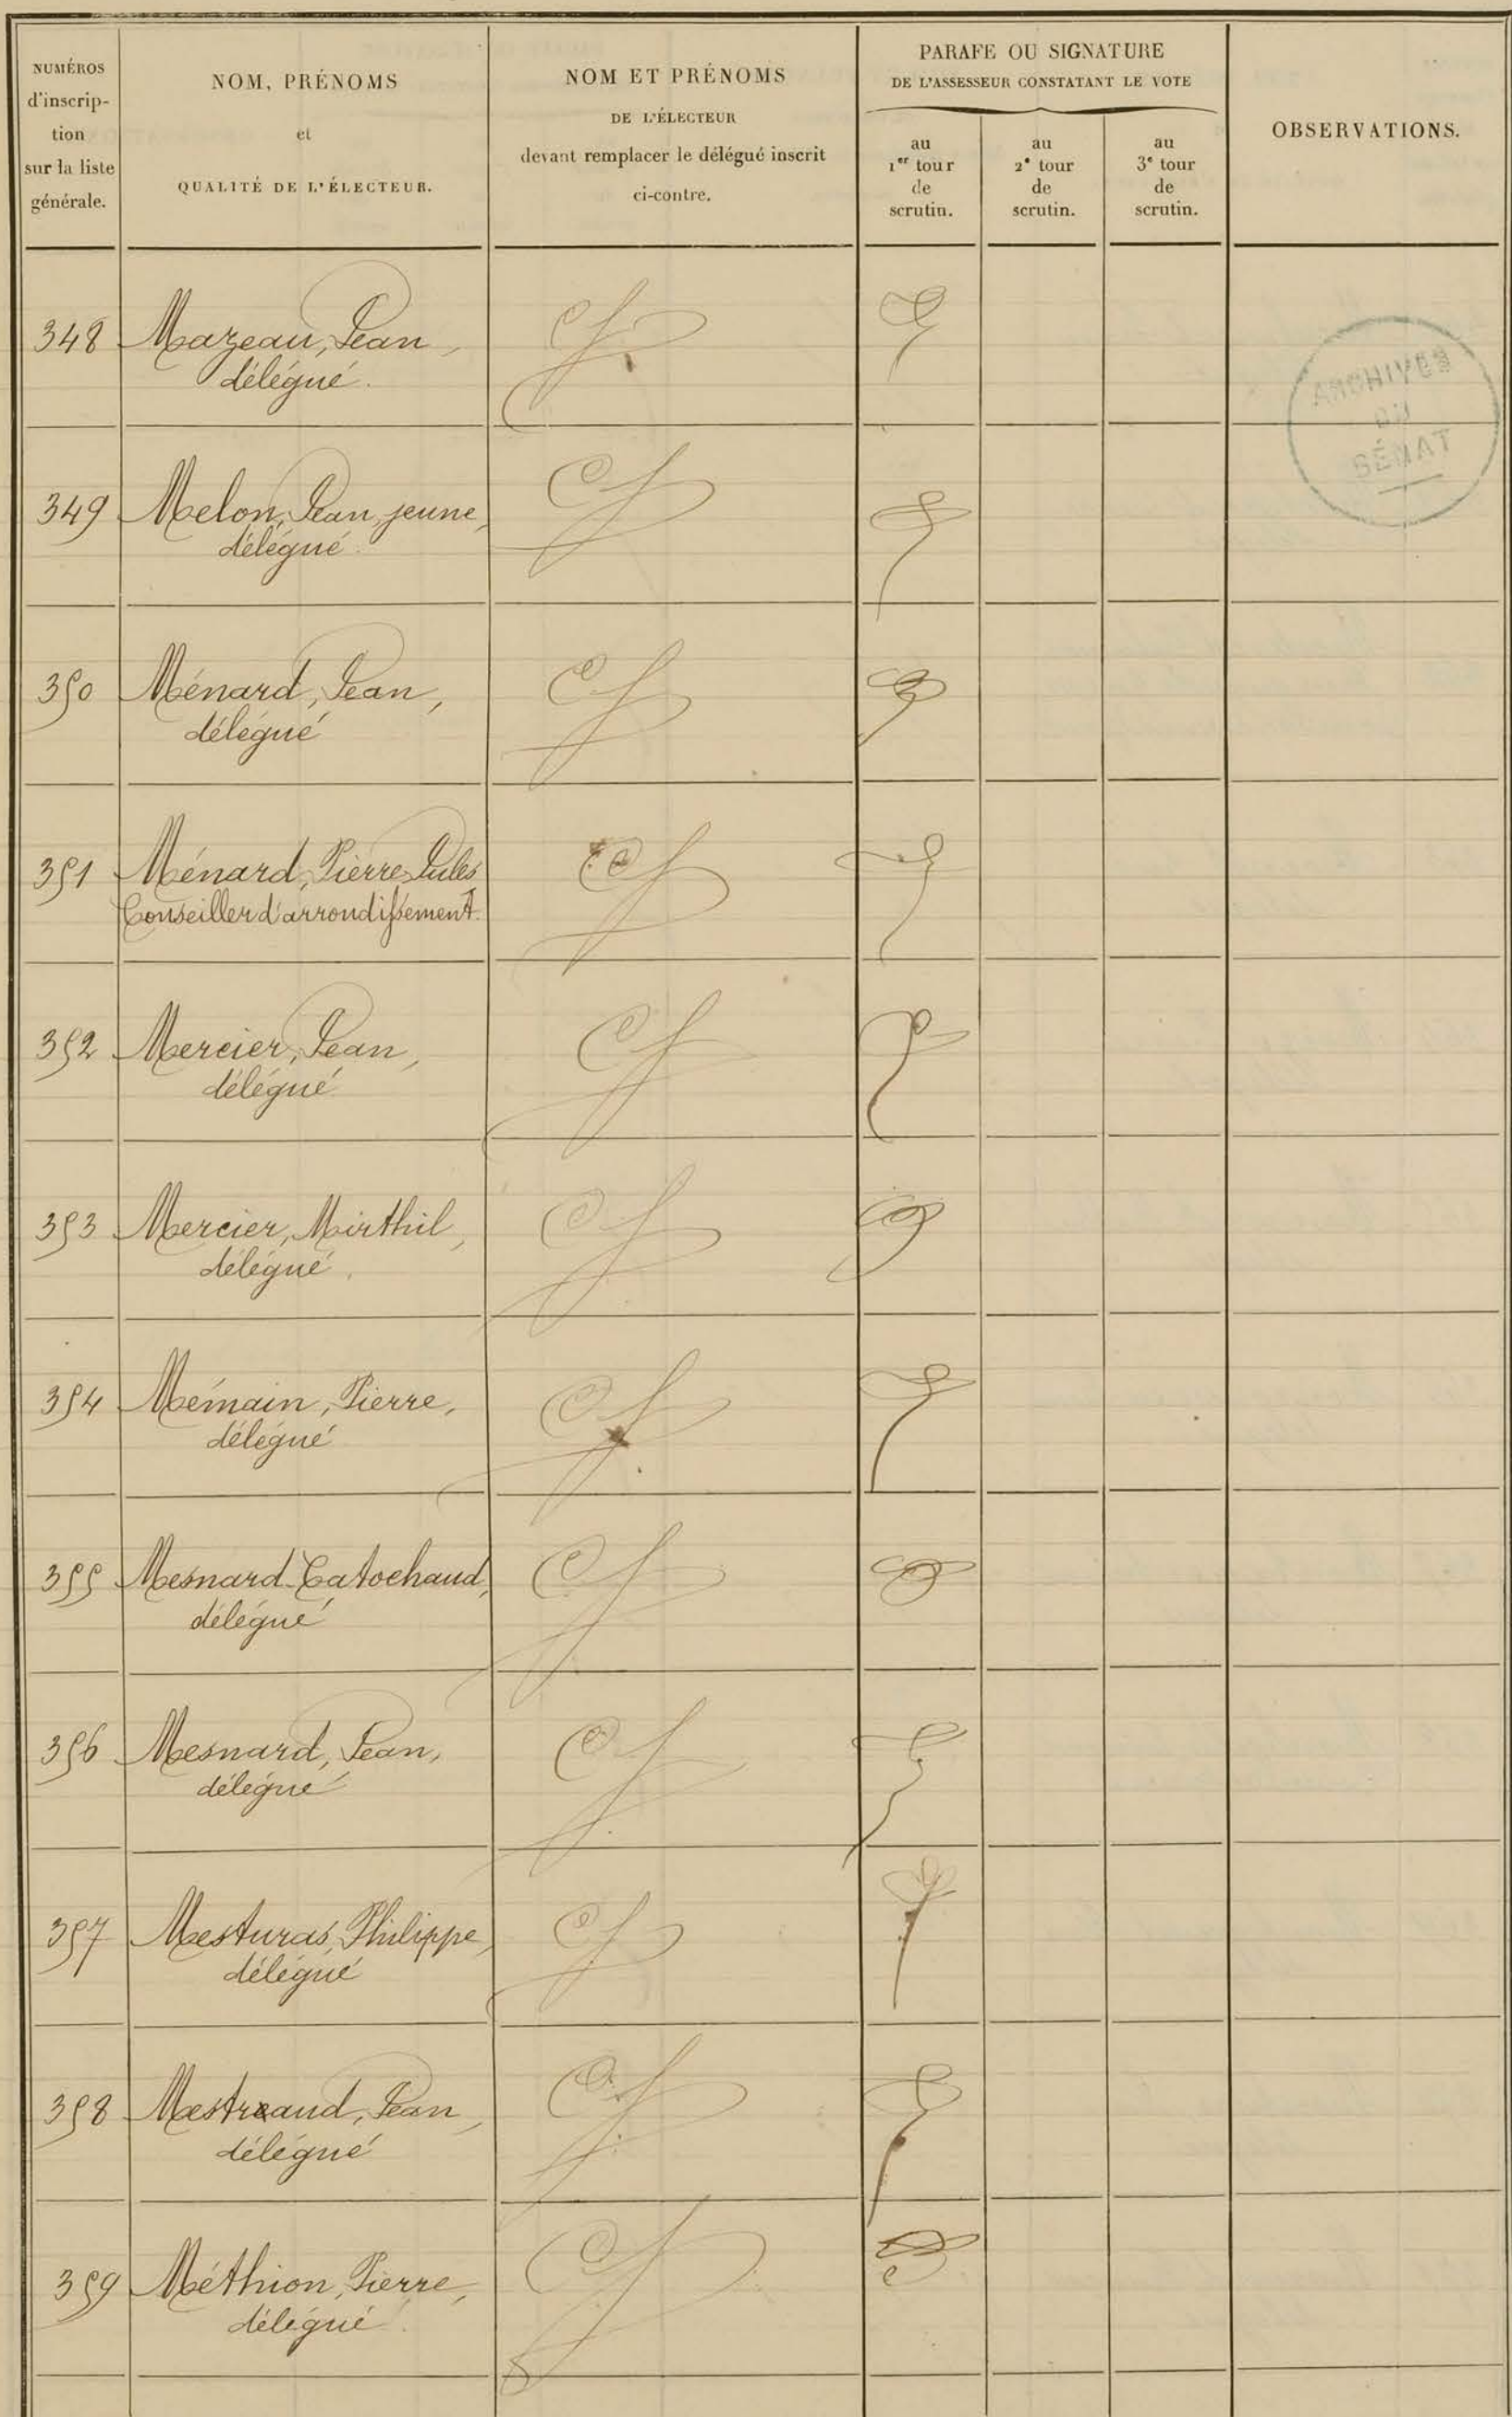 NUMÉROS
d'inscrip-
tion
sur la liste
générale.
NOM, PRÉNOMS
et
QUALITÉ DE L'ÉLECTEUR.
NOM ET PRÉNOMS
DE L'ÉLECTEUR
devant remplacer le délégué inscrit
ci-contre.
PARAFE OU SIGNATURE
DE L'ASSESSEUR CONSTATANT LE VOTE
au
1er tour
de
scrutin.
au
2e tour
de
scrutin.
au
3e tour
de
scrutin.
OBSERVATIONS.
348 Mazeau, Jean,
délégué.
ARCHIVES
DU
SÉNAT
349 Melon, Jean, jeune,
délégué
350 Ménard, Jean,
délégué
351 Ménard, Pierre Jules
Conseiller d'arrondissement.
352 Mercier, Jean,
délégué
353 Mercier, Mirthil,
délégué.
354 Mémain, Pierre,
délégué
355 Mesnard-Catochaud,
délégué
356 Mesnard, Jean,
délégué
357 Mesturas, Philippe,
délégué
358 Mestreaud, Jean,
délégué
359 Méthion, Pierre,
délégué.